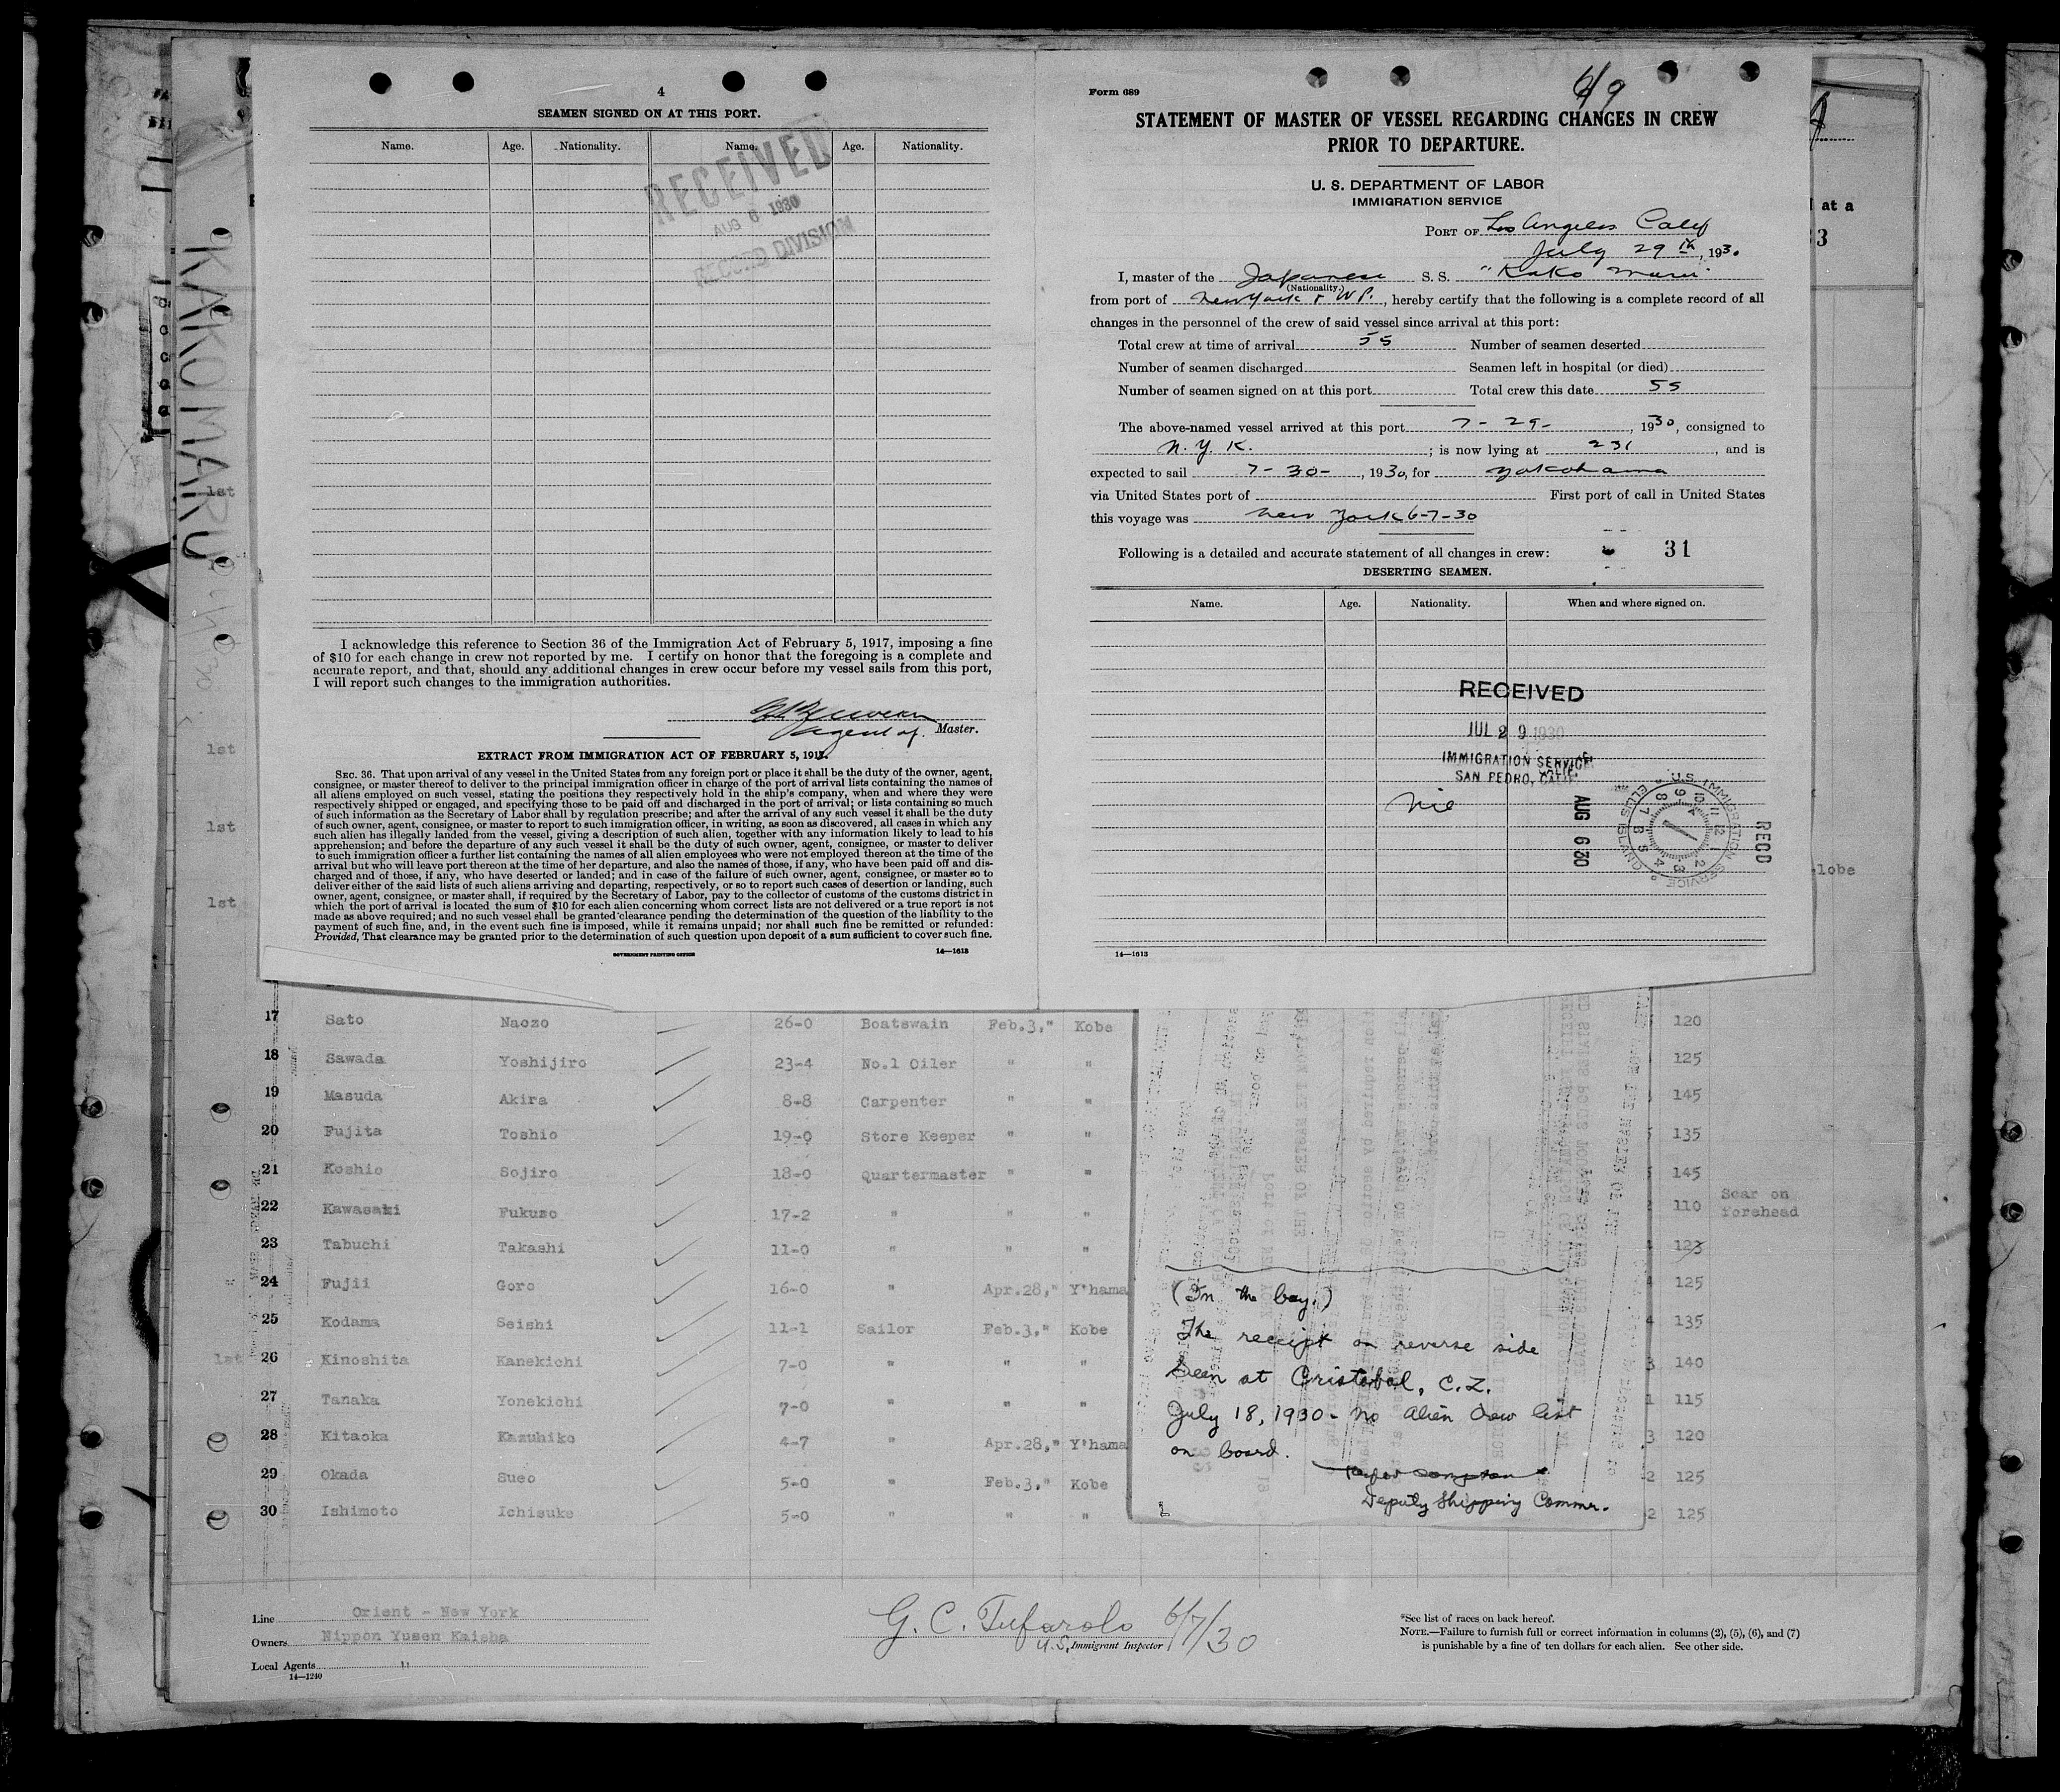 4
SEAMEN SIGNED ON AT THIS PORT.
Name. Age. Nationality. Name. Age. Nationality.
RECEIVED
AUG 6 1930
RECORD DIVISION
I acknowledge this reference to Section 36 of the Immigration Act of February 5, 1917, imposing a fine
of $10 for each change in crew not reported by me. I certify on honor that the foregoing is a complete and
accurate report, and that, should any additional changes in crew occur before my vessel sails from this port,
I will report such changes to the immigration authorities.
Agent of Master.
EXTRACT FROM IMMIGRATION ACT OF FEBRUARY 5, 1917.
SEC. 36. That upon arrival of any vessel in the United States from any foreign port or place it shall be the duty of the owner, agent,
consignee, or master thereof to deliver to the principal immigration officer in charge of the port of arrival lists containing the names of
all aliens employed on such vessel, stating the positions they respectively hold in the ship's company, when and where they were
respectively shipped or engaged, and specifying those to be paid off and discharged in the port of arrival; or lists containing so much
of such information as the Secretary of Labor shall by regulation prescribe; and after the arrival of any such vessel it shall be the duty
of such owner, agent, consignee, or master to report to such immigration officer, in writing, as soon as discovered, all cases in which any
such alien has illegally landed from the vessel, giving a description of such alien, together with any information likely to lead to his
apprehension; and before the departure of any such vessel it shall be the duty of such owner, agent, consignee, or master to deliver
to such immigration officer a further list containing the names of all alien employees who were not employed thereon at the time of the
arrival but who will leave port thereon at the time of her departure, and also the names of those, if any, who have been paid off and dis-
charged and of those, if any, who have deserted or landed; and in case of the failure of such owner, agent, consignee, or master so to
deliver either of the said lists of such aliens arriving and departing, respectively, or so to report such cases of desertion or landing, such
owner, agent, consignee, or master shall, if required by the Secretary of Labor, pay to the collector of customs of the customs district in
which the port of arrival is located the sum of $10 for each alien concerning whom correct lists are not delivered or a true report is not
made as above required; and no such vessel shall be granted clearance pending the determination of the question of the liability to the
payment of such fine, and, in the event such fine is imposed, while it remains unpaid; nor shall such fine be remitted or refunded:
Provided, That clearance may be granted prior to the determination of such question upon deposit of a sum sufficient to cover such fine.
GOVERNMENT PRINTING OFFICE 14—1613
Form 689
STATEMENT OF MASTER OF VESSEL REGARDING CHANGES IN CREW
PRIOR TO DEPARTURE.
U. S. DEPARTMENT OF LABOR
IMMIGRATION SERVICE
PORT OF Los Angeles Calif
July 29th, 1930
I, master of the Japanese S. S. "Kako Maru"
(Nationality.)
from port of New York & WP., hereby certify that the following is a complete record of all
changes in the personnel of the crew of said vessel since arrival at this port:
Total crew at time of arrival 55 Number of seamen deserted
Number of seamen discharged Seamen left in hospital (or died)
Number of seamen signed on at this port Total crew this date 55
The above-named vessel arrived at this port 7-29-, 1930, consigned to
N. Y. K.; is now lying at 231, and is
expected to sail 7-30-, 1930, for Yokohama
via United States port of First port of call in United States
this voyage was New York 6-7-30
Following is a detailed and accurate statement of all changes in crew: 31
DESERTING SEAMEN.
Name. Age. Nationality. When and where signed on.
RECEIVED
JUL 29 1930
IMMIGRATION SERVICE
SAN PEDRO, CALIF.
Nil
AUG 6 30
U.S. IMMIGRATION SERVICE ELLIS ISLAND
REC'D
14—1613
KAKO MARU
at a
3
1st
1st
1st
1st
lobe
17 Sato Naozo 26-0 Boatswain Feb.3," Kobe 120
18 Sawada Yoshijiro 23-4 No.1 Oiler " " 125
19 Masuda Akira 8-8 Carpenter " " 145
20 Fujita Toshio 19-0 Store Keeper " " 135
21 Koshio Sojiro 18-0 Quartermaster " " 145
22 Kawasaki Fukuzo 17-2 " " " 110 Scar on forehead
23 Tabuchi Takashi 11-0 " " " 123
24 Fujii Goro 16-0 " Apr.28," Y'hama 125
25 Kodama Seishi 11-1 Sailor Feb.3," Kobe 135
1st 26 Kinoshita Kanekichi 7-0 " " " 140
27 Tanaka Yonekichi 7-0 " " " 115
28 Kitaoka Kazuhiko 4-7 " Apr.28," Y'hama 120
29 Okada Sueo 5-0 " Feb.3," Kobe 125
30 Ishimoto Ichisuke 5-0 " " " 125
(In the bay.)
The receipt on reverse side
seen at Cristobal, C.Z.
July 18, 1930 - No Alien Crew list
on board.
Deputy Shipping Commr.
Line Orient - New York
Owners Nippon Yusen Kaisha
Local Agents "
14—1240
G. C. Tufarolo 6/7/30
U.S. Immigrant Inspector
*See list of races on back hereof.
NOTE.—Failure to furnish full or correct information in columns (2), (5), (6), and (7)
is punishable by a fine of ten dollars for each alien. See other side.